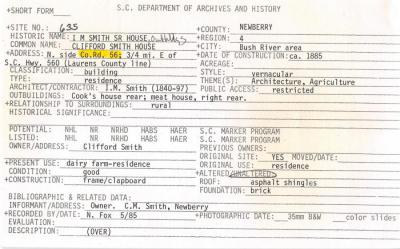 +SHORT FORM S.C. DEPARTMENT OF ARCHIVES AND HISTORY
+SITE NO. 635 +COUNTY: NEWBERRY
HISTORIC NAME: I M SMITH SR HOUSE, outbldgs +REGION: 4
COMMON NAME: CLIFFORD SMITH HOUSE +CITY: Bush River area
+ADDRESS: N. side Co.Rd. 56; 3/4 mi. E of +DATE OF CONSTRUCTION: ca. 1885
S.C. Hwy. 560 (Laurens County line) ACREAGE:
CLASSIFICATION: building STYLE: vernacular
TYPE: residence THEME(S): Architecture, Agriculture
ARCHITECT/CONTRACTOR: I.M. Smith (1840-97) PUBLIC ACCESS: restricted
OUTBUILDINGS: Cook's house rear; meat house, right rear.
+RELATIONSHIP TO SURROUNDINGS: rural
HISTORICAL SIGNIFICANCE:
POTENTIAL: NHL NR NRHD HABS HAER S.C. MARKER PROGRAM
LISTED: NHL NR NRHD HABS HAER S.C. MARKER PROGRAM
OWNER/ADDRESS: Clifford Smith PREVIOUS OWNERS:
ORIGINAL SITE: YES MOVED/DATE:
+PRESENT USE: dairy farm-residence ORIGINAL USE: residence
CONDITION: good +ALTERED/UNALTERED:
+CONSTRUCTION: frame/clapboard ROOF: asphalt shingles
FOUNDATION: brick
BIBLIOGRAPHIC & RELATED DATA:
INFORMANT/ADDRESS: Owner. C.M. Smith, Newberry
+RECORDED BY/DATE: N. Fox 5/85 +PHOTOGRAPHIC DATE: 35mm B&W color slides
EVALUATION:
DESCRIPTION: (OVER)